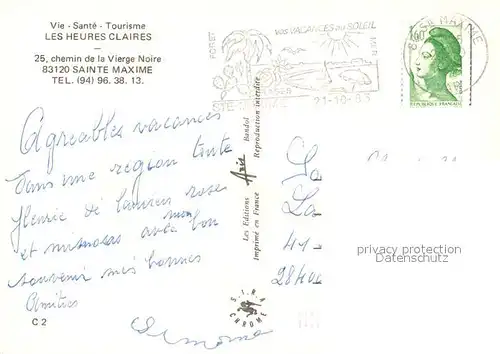 Vie - Santé - Tourisme
LES HEURES CLAIRES
25, chemin de la Vierge Noire
83120 SAINTE MAXIME
TEL. (94) 96. 38. 13.
FORET
VOS VACANCES AU SOLEIL
MER
STE MAXIME
21-10-83
83 STE MAXIME
1,60
REPUBLIQUE FRANCAISE
Agreables vacances
dans une region toute
fleurie de lauriers roses
et mimosas avec mon bon
souvenir mes bonnes
Amitiés
Simone
C 2
Les Editions Aris Bandol
Imprimé en France Reproduction interdite
S.I.R.A.
CHROME
La
La
41-
28400
privacy protection
Datenschutz